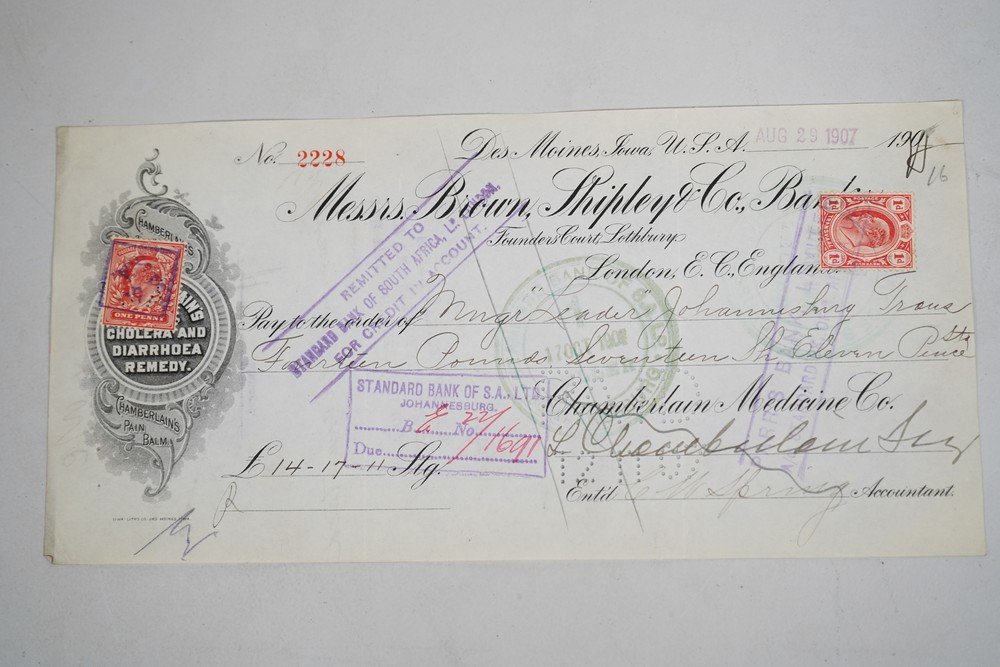 No. 2228
Des Moines, Iowa, U.S.A. AUG 29 1907 190
16
Messrs. Brown, Shipley & Co., Bankers
Founders Court, Lothbury
London, E.C., England.
Pay to the order of "Mngr Leader" Johannesburg Trans
Fourteen Pounds Seventeen Sh Eleven Pence Stg
Chamberlain Medicine Co.
£14-17-11 Stg.
L. Chamberlain
Ent'd Accountant.
R
CHAMBERLAIN'S
CHOLERA AND
DIARRHOEA
REMEDY.
CHAMBERLAIN'S
PAIN
BALM.
ONE PENNY
1d 1d
1d 1d
REMITTED TO
STANDARD BANK OF SOUTH AFRICA, LD. LONDON.
FOR CREDIT ACCOUNT.
STANDARD BANK OF S.A., LTD.
JOHANNESBURG.
B No. 22/1691
Due